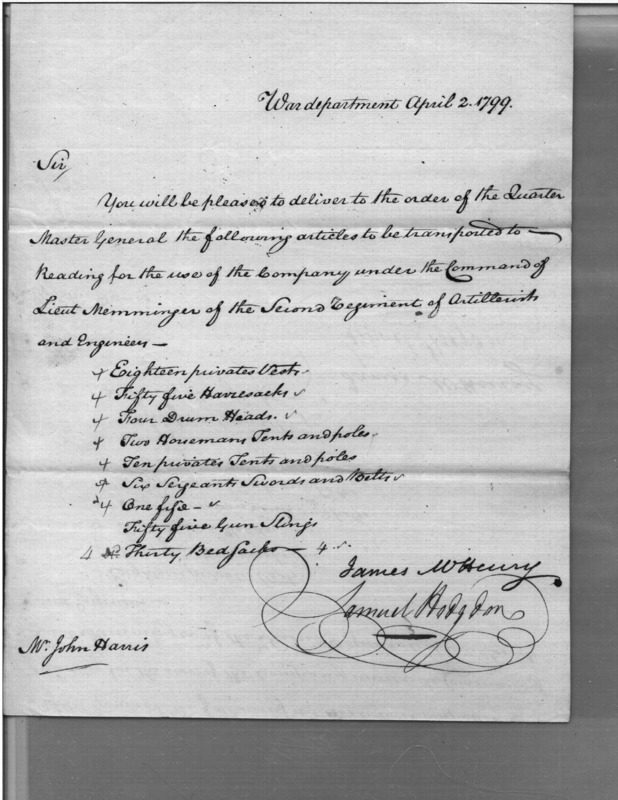 War department April 2. 1799.
Sir,
You will be pleased to deliver to the order of the Quarter
Master General the following articles to be transported to —
Reading for the use of the Company under the Command of
Lieut Memminger of the Second Regiment of Artillerists
and Engineers —
Eighteen privates Vests
Fifty five Haversacks
Four Drum Heads.
Two Horsemans Tents and poles
Ten privates Tents and poles
Six Sergeants Swords and Belts
One fife —
Fifty five Gun Slings
4 Thirty Bed Sacks — 4
James McHenry
Samuel Hodgdon
Mr. John Harris